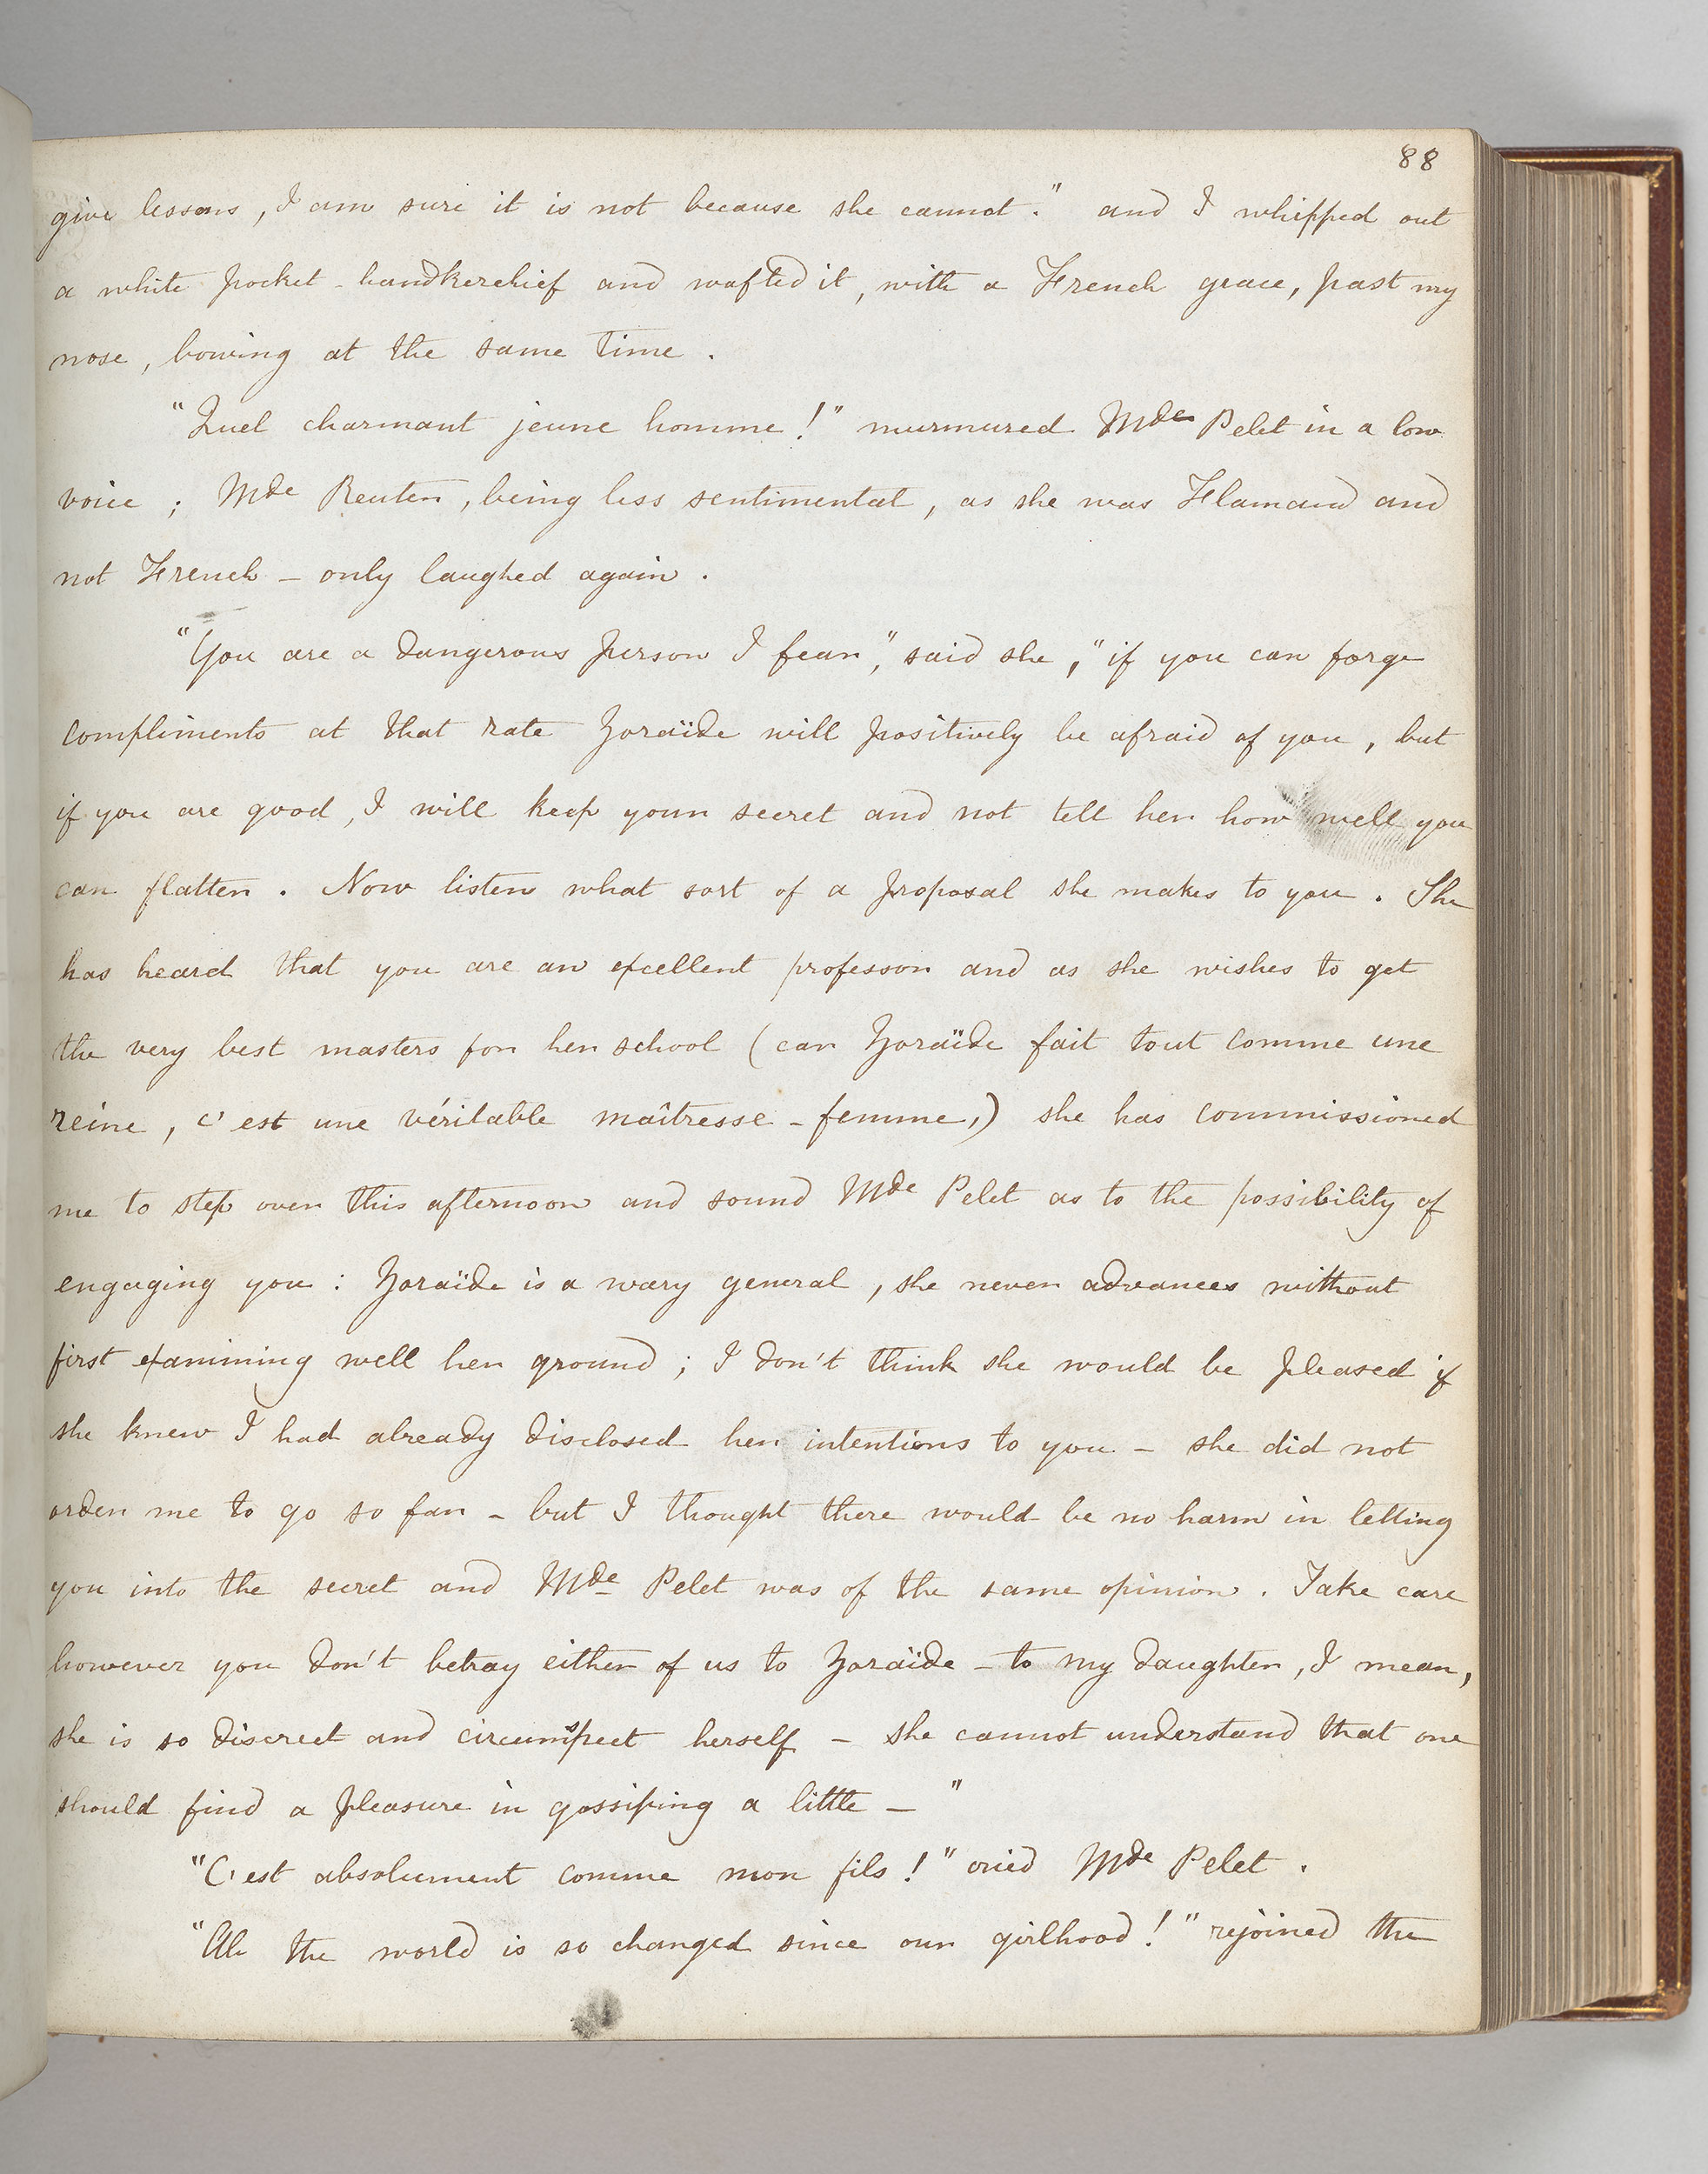 88
give lessons, I am sure it is not because she cannot." and I whipped out
a white pocket-handkerchief and wafted it, with a French grace, past my
nose, bowing at the same time.
"Quel charmant jeune homme!" murmured Mde Pelet in a low
voice; Mde Reuter, being less sentimental, as she was Flamand and
not French – only laughed again.
"You are a dangerous person I fear," said she, "if you can forge
compliments at that rate Zoraïde will positively be afraid of you, but
if you are good, I will keep your secret and not tell her how well you
can flatter. Now listen what sort of a proposal she makes to you. She
has heard that you are an excellent professor and as she wishes to get
the very best masters for her school (car Zoraïde fait tout comme une
reine, c'est une véritable maîtresse-femme,) she has commissioned
me to step over this afternoon and sound Mde Pelet as to the possibility of
engaging you: Zoraïde is a wary general, she never advances without
first examining well her ground; I don't think she would be pleased if
she knew I had already disclosed her intentions to you – she did not
order me to go so far – but I thought there would be no harm in letting
you into the secret and Mde Pelet was of the same opinion. Take care
however you don't betray either of us to Zoraïde – to my daughter, I mean,
she is so discreet and circumspect herself – she cannot understand that one
should find a pleasure in gossiping a little – "
"C'est absolument comme mon fils!" cried Mde Pelet.
"Ah the world is so changed since our girlhood!" rejoined the